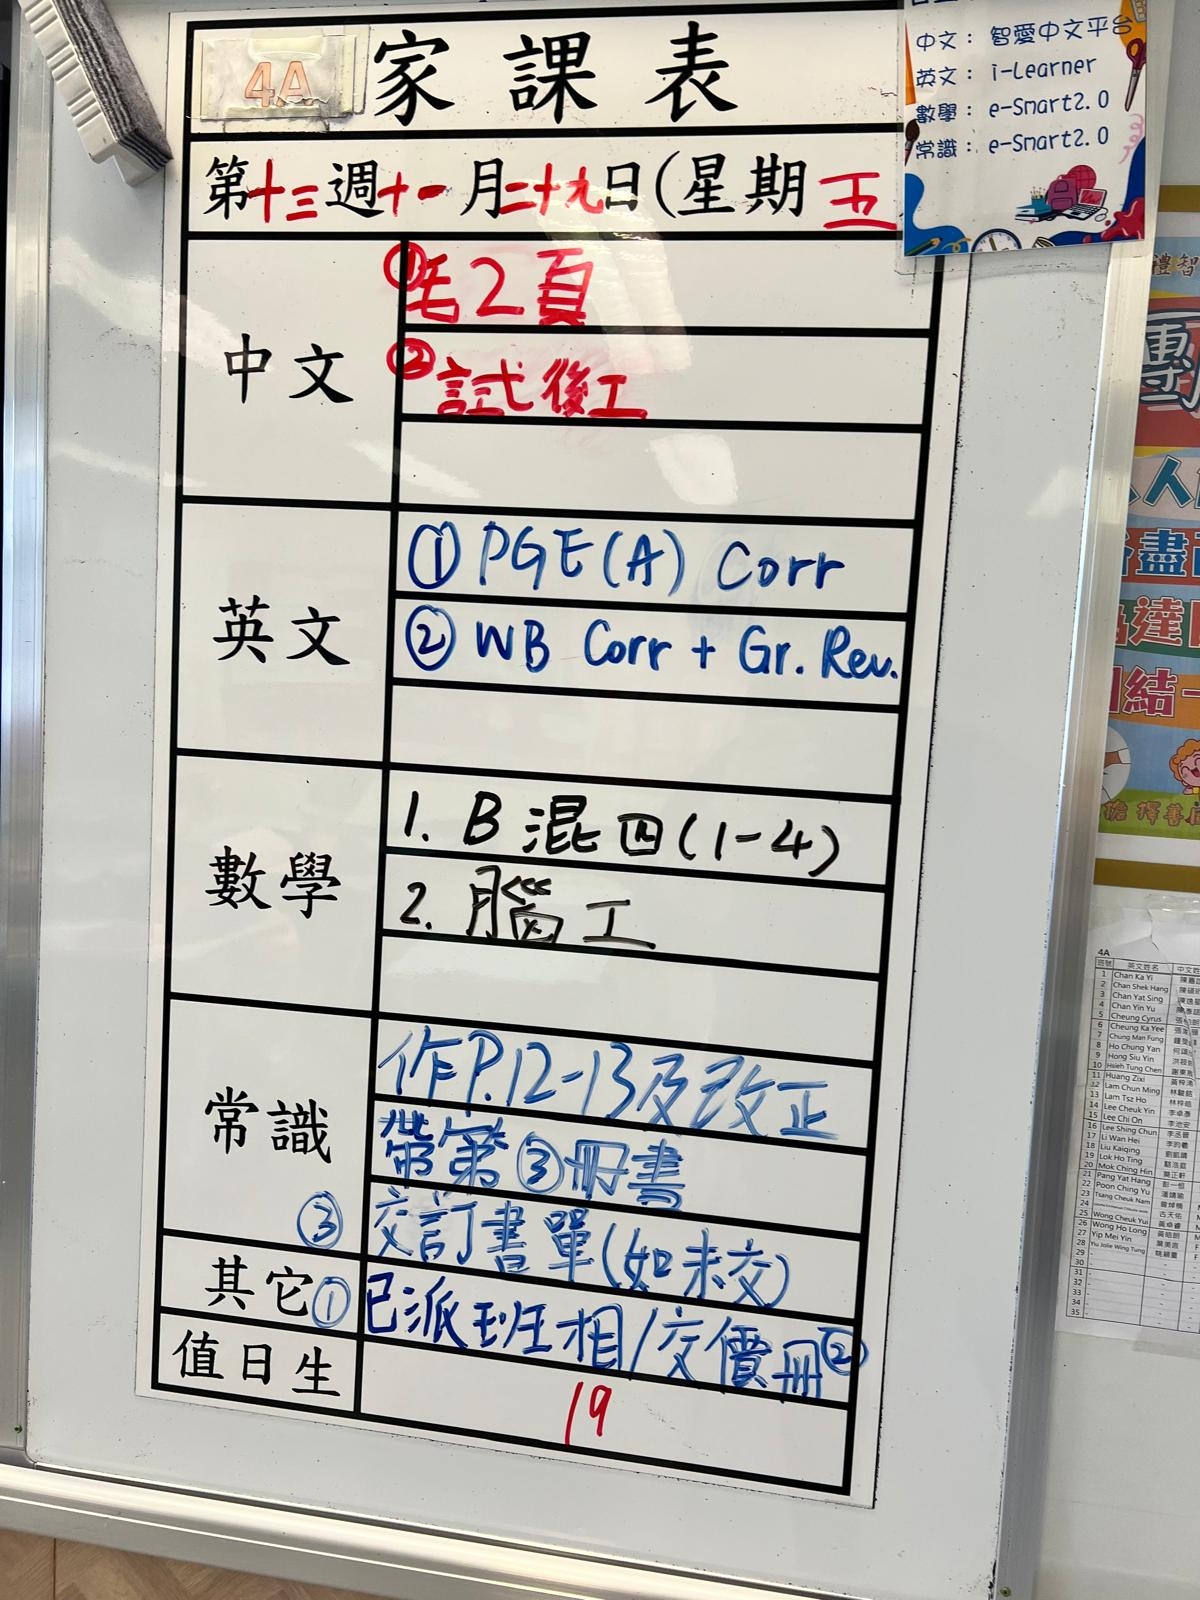 4A 家課表
第十三週十一月二十九日(星期五
中文
①毛2頁
②試後工
英文
① PGE(A) Corr
② WB Corr + Gr. Rev.
數學
1. B 混四(1-4)
2. 腦工
常識
作P.12-13及改正
帶第③冊書
③ 交訂書單(如未交)
其它 ① 已派班相/交價冊②
值日生
19
中文： 智愛中文平台
英文： i-Learner
數學： e-Smart2.0
常識： e-Smart2.0
禮智
團
人
盡
達
結一
擇善
4A
班號 英文姓名
1 Chan Ka Yi
2 Chan Shek Hang
3 Chan Yat Sing
4 Chan Yin Yu
5 Cheung Cyrus
6 Cheung Ka Yee
7 Chung Man Fung
8 Ho Chung Yan
9 Hong Siu Yin
10 Hsieh Tung Chen
11 Huang Zixi
12 Lam Chun Ming
13 Lam Tsz Ho
14 Lee Cheuk Yin
15 Lee Chi On
16 Lee Shing Chun
17 Li Wan Hei
18 Liu Kaiqing
19 Lok Ho Ting
20 Mok Ching Hin
21 Pang Yat Hang
22 Poon Ching Yu
23 Tsang Cheuk Nam
24
25 Wong Cheuk Yui
26 Wong Ho Long
27 Yip Mei Yin
28 Yiu Jolie Wing Tung
29
30
31
32
33
34
35